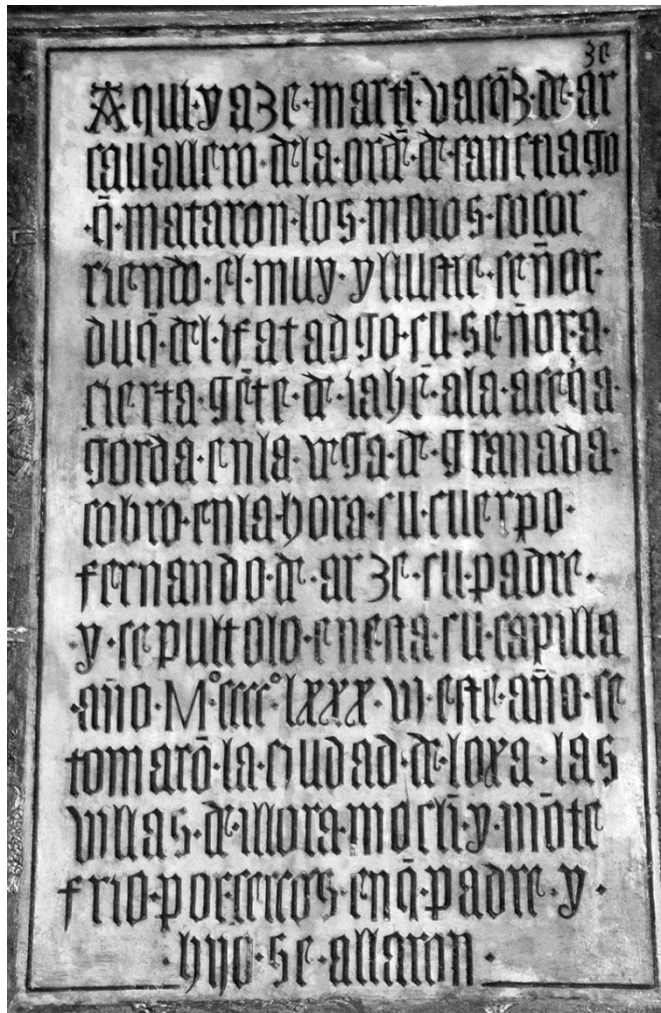 ze
Aqui · yaze · martī · vasq̄z · de · ar
cavallero · de la · ordē · de · sanctiago
· q̄ · mataron · los · moros · socor
riendo · el · muy · yllustre · señor ·
duq̄ · del · īfatadgo · su · señor · a ·
cierta · gēte · de · iahē · ala · aceq̄a ·
gorda · enla · vega · de · granada ·
cobro · enla · hora · su · cuerpo ·
fernando · de · arze · su · padre ·
· y · sepultolo · enesta · su · capilla
· año · Mº · ccccº · lxxx · vi · este · año · se
tomarō · la · ciudad · de · loxa · las
villas · de · illora · moclī · y · mōte
frio · por · cercos · enq̄ · padre · y ·
· hijo · se · allaron ·